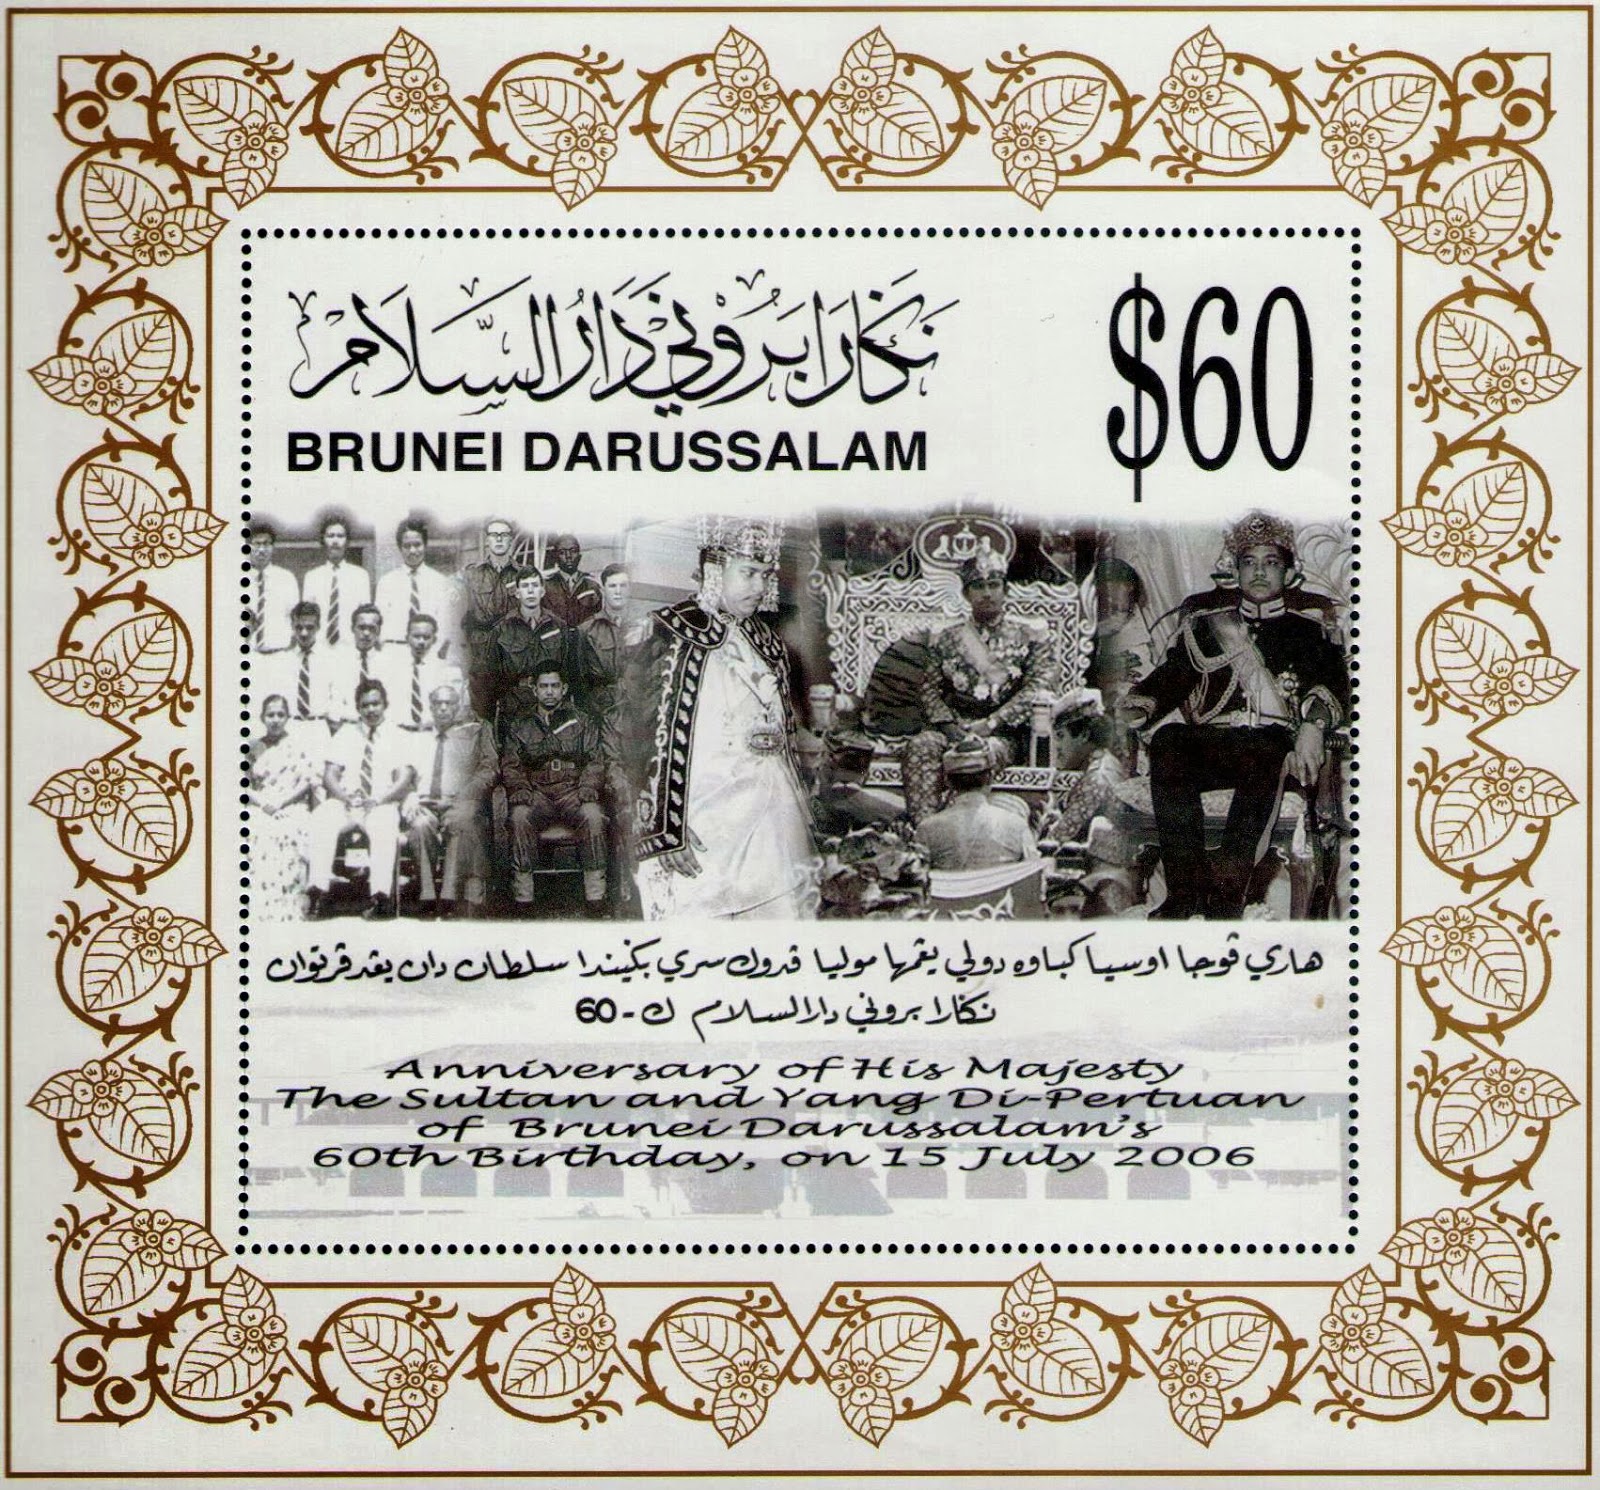 نݢارا بروني دارالسلام
$60
BRUNEI DARUSSALAM
هاري ڤوجا اوسيا کباوه دولي يڠمها موليا ڤدوک سري بݢيندا سلطان دان يڠد ڤرتوان
نݢارا بروني دارالسلام ک-60
Anniversary of His Majesty
The Sultan and Yang Di-Pertuan
of Brunei Darussalam's
60th Birthday, on 15 July 2006